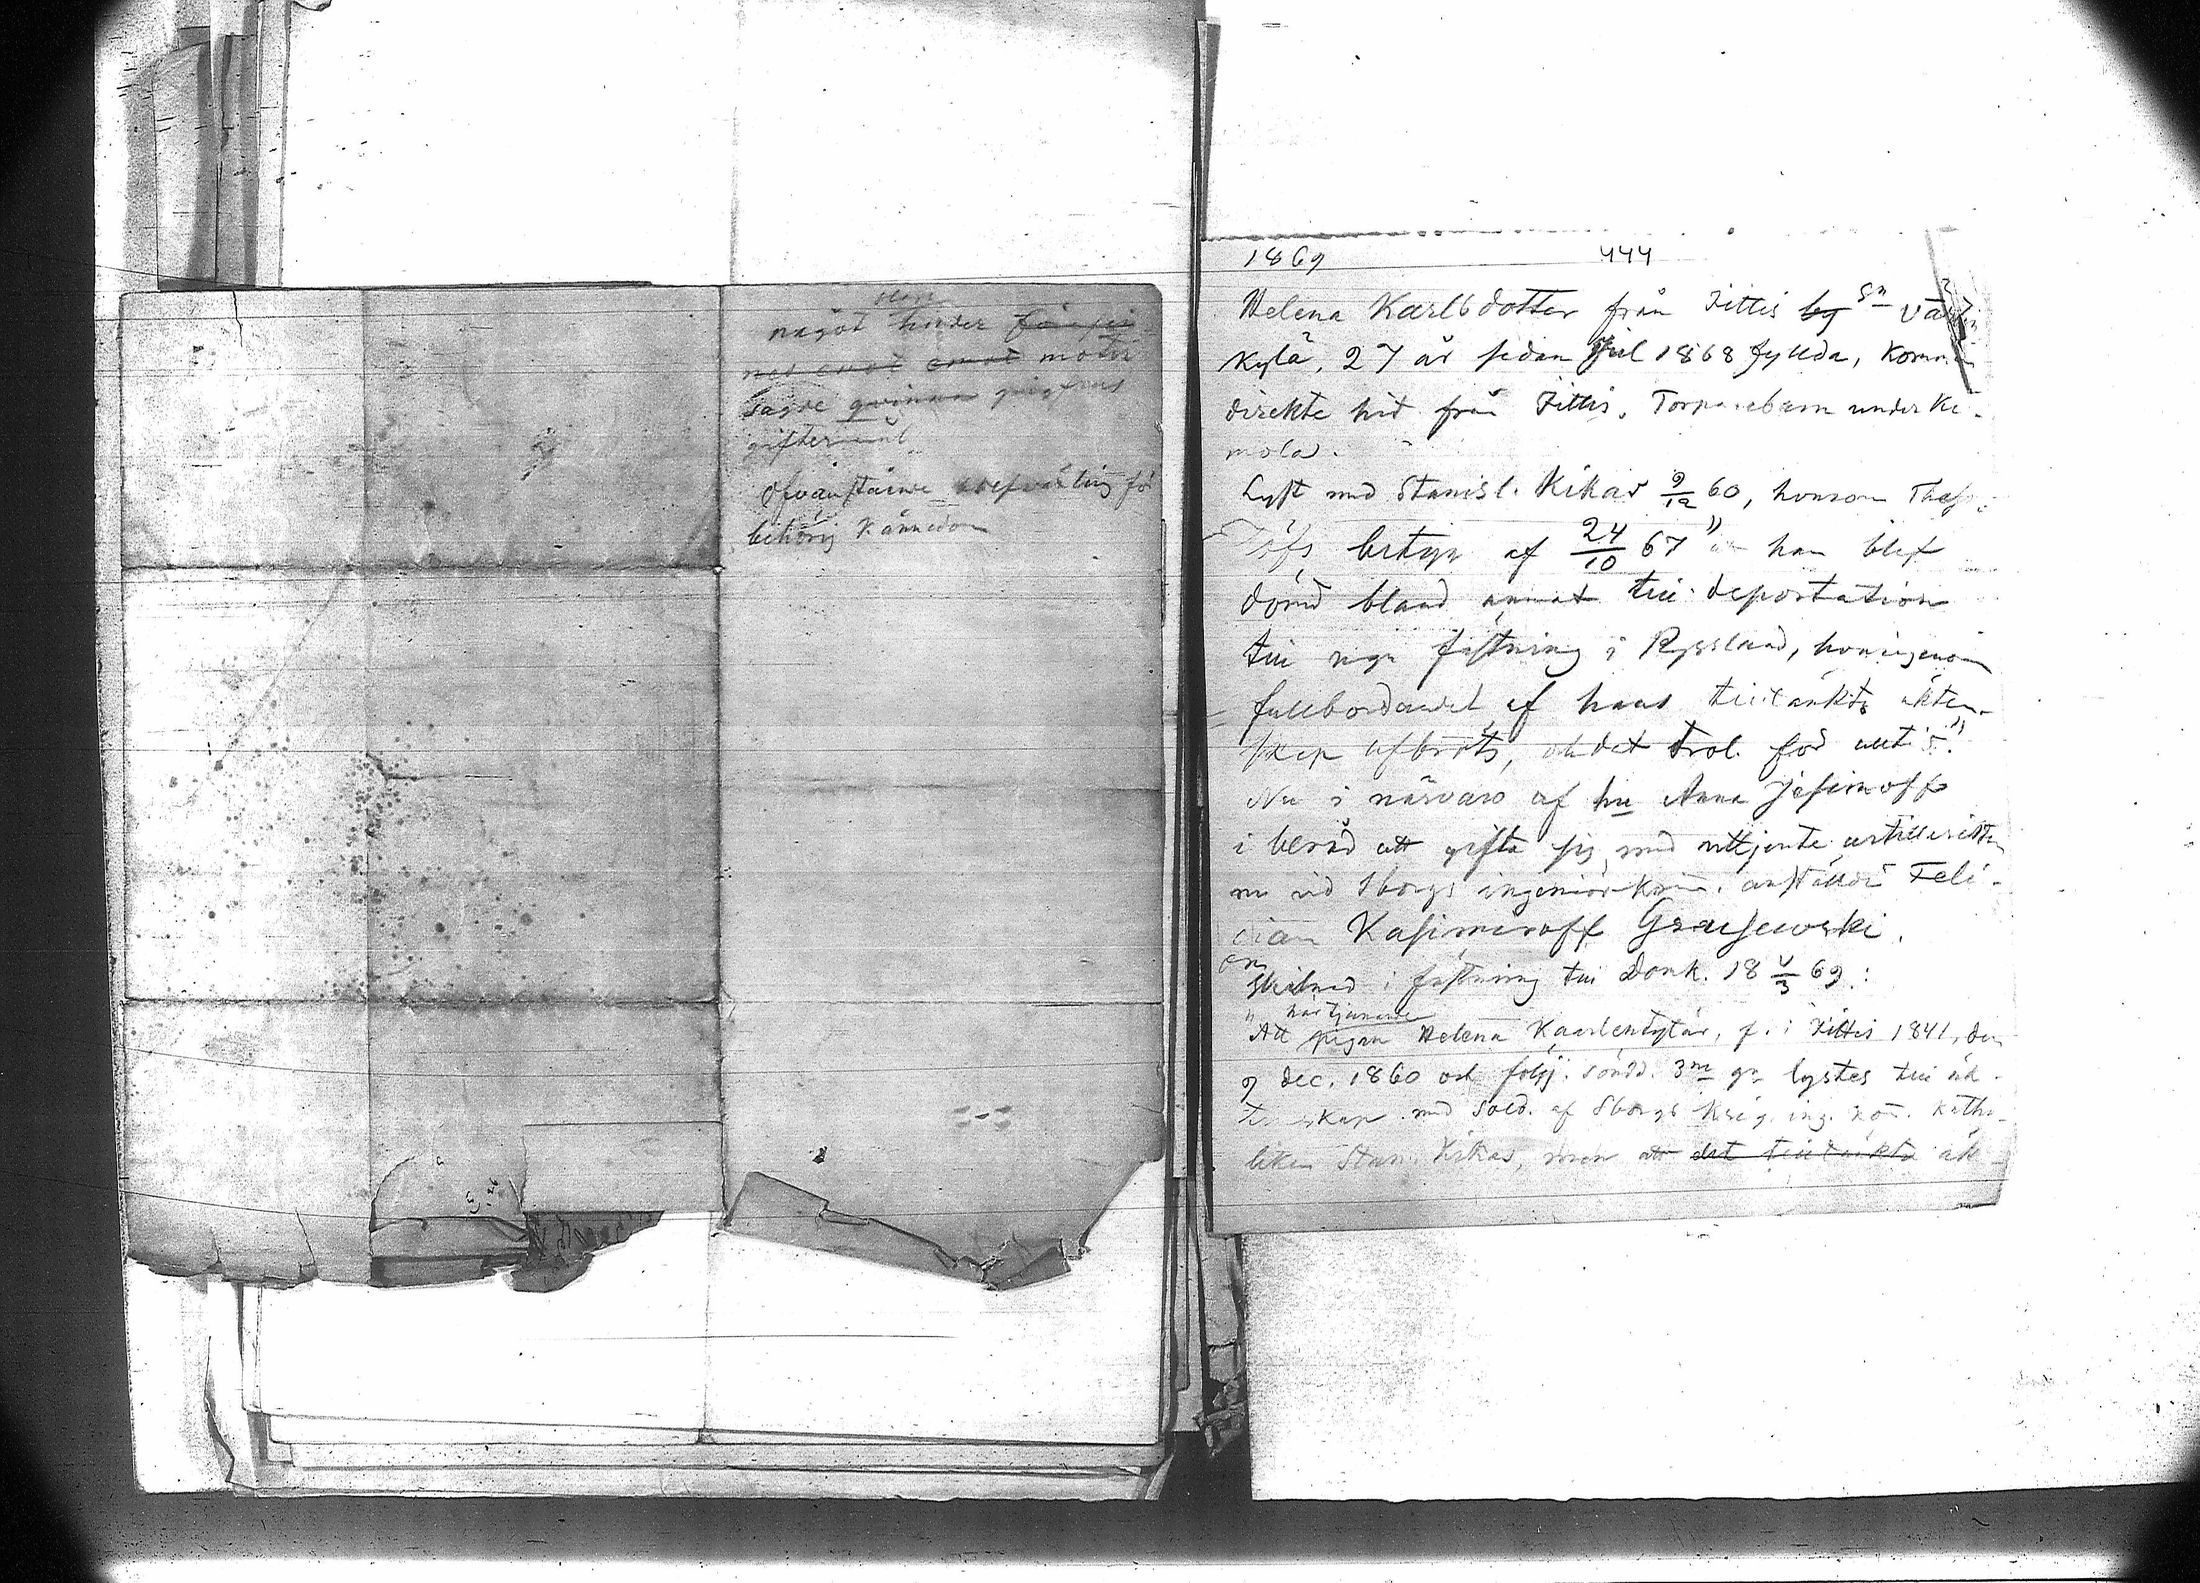 något hinder
mot
sagde qvinna
giftermål
behörig kännedom
1869 444
Helena Karlsdotter från Jittis by sn
kylä, 27 år sedan Jul 1868 fyllda, komm
direkte hit från Jittis. Torparebarn under Ki-
mola.
Lyst med Stanisl. Kikas 9/12 60, honom
betyg af 24/10 67 " han blef
dömd bland annat till deportation
till ngn fästning i Ryssland, hvarigenom
fullbordandet af hans tilltänkta äkten-
skap afbröts, och det trol. för alltid."
Nu i närvaro af hu Anna Jefimoff
i beråd att gifta sig med uttjente artilleristen
nu vid Sborgs ingeniörkom. anstälde Feli-
cian Kasimiroff
Skilnad i fästning till Domk. 18 4/3 69:
här tjenande
"Att pigan Helena Kaarlentytär, f. i Jittis 1841, den
9 dec. 1860 och följ. sönd. 3ne gr lystes till äk-
tenskap med sold. af Sborgs krig. ing. kom. katho-
liken Stan. Kikas, men att det tilltänkta äk-